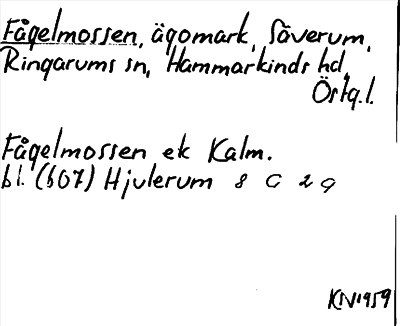 Fågelmossen, ägomark, Såverum,
Ringarums sn, Hammarkinds hd,
Östg.l.
Fågelmossen ek Kalm.
bl. (607) Hjulerum 8 G 2 g
KN 1959